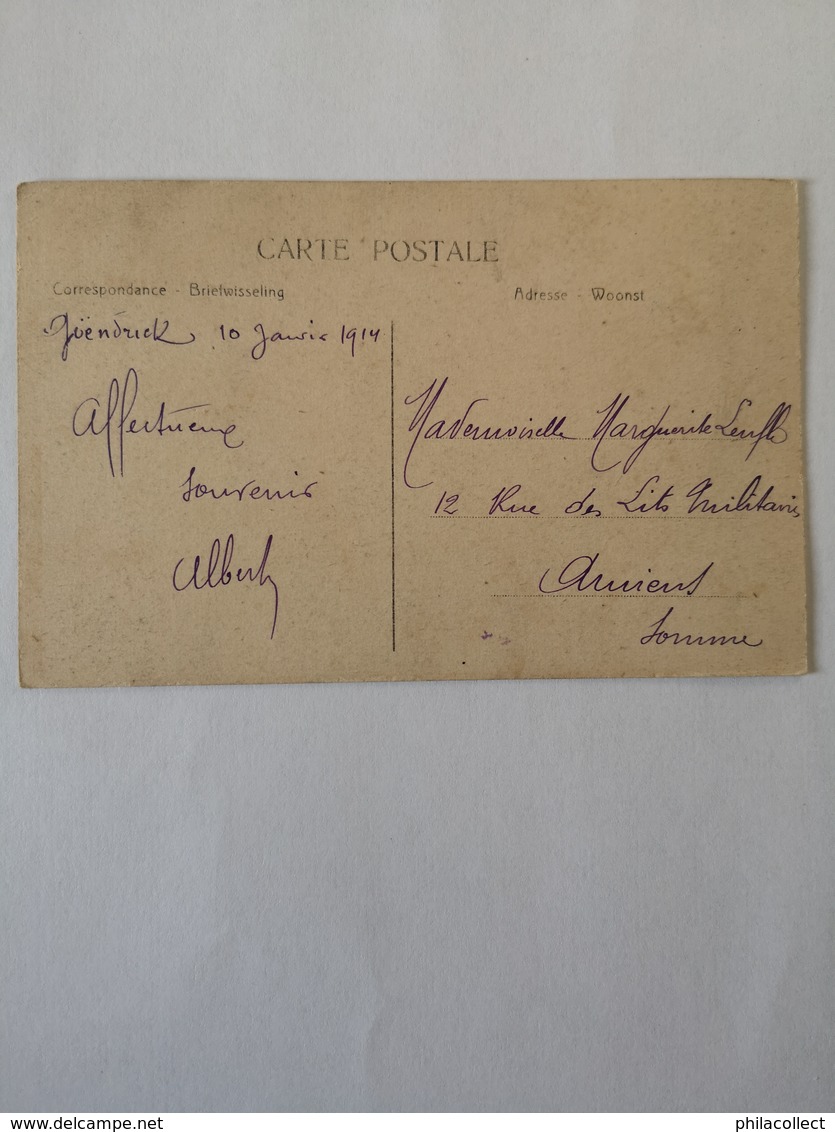 CARTE POSTALE
Correspondance - Briefwisseling
Adresse - Woonst
10 Janvier 1914
Affectueux
Souvenir
Albert
Mademoiselle Marguerite
12 Rue des Lits Militaires
Amiens
Somme
delcampe.net
philacollect